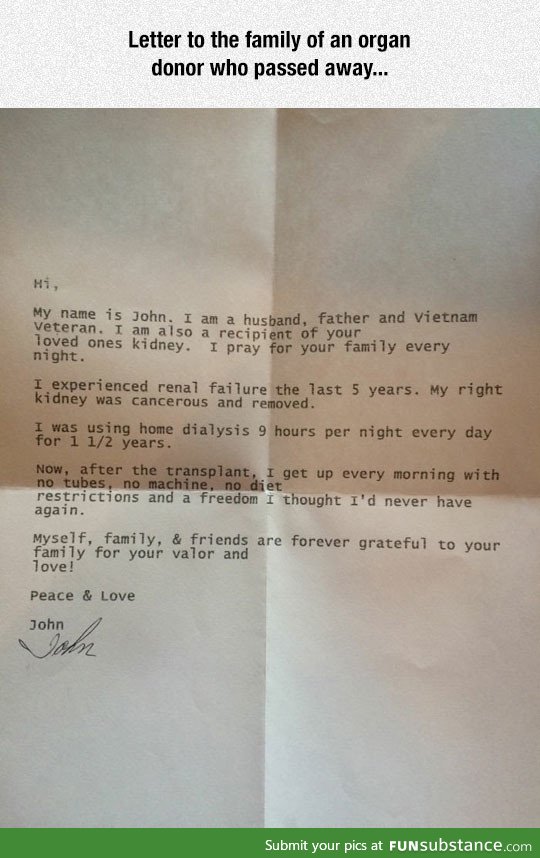 Letter to the family of an organ
donor who passed away...
Hi,
My name is John. I am a husband, father and Vietnam
Veteran. I am also a recipient of your
loved ones kidney. I pray for your family every
night.
I experienced renal failure the last 5 years. My right
kidney was cancerous and removed.
I was using home dialysis 9 hours per night every day
for 1 1/2 years.
Now, after the transplant, I get up every morning with
no tubes, no machine, no diet
restrictions and a freedom I thought I'd never have
again.
Myself, family, & friends are forever grateful to your
family for your valor and
love!
Peace & Love
John
John
Submit your pics at FUNsubstance.com